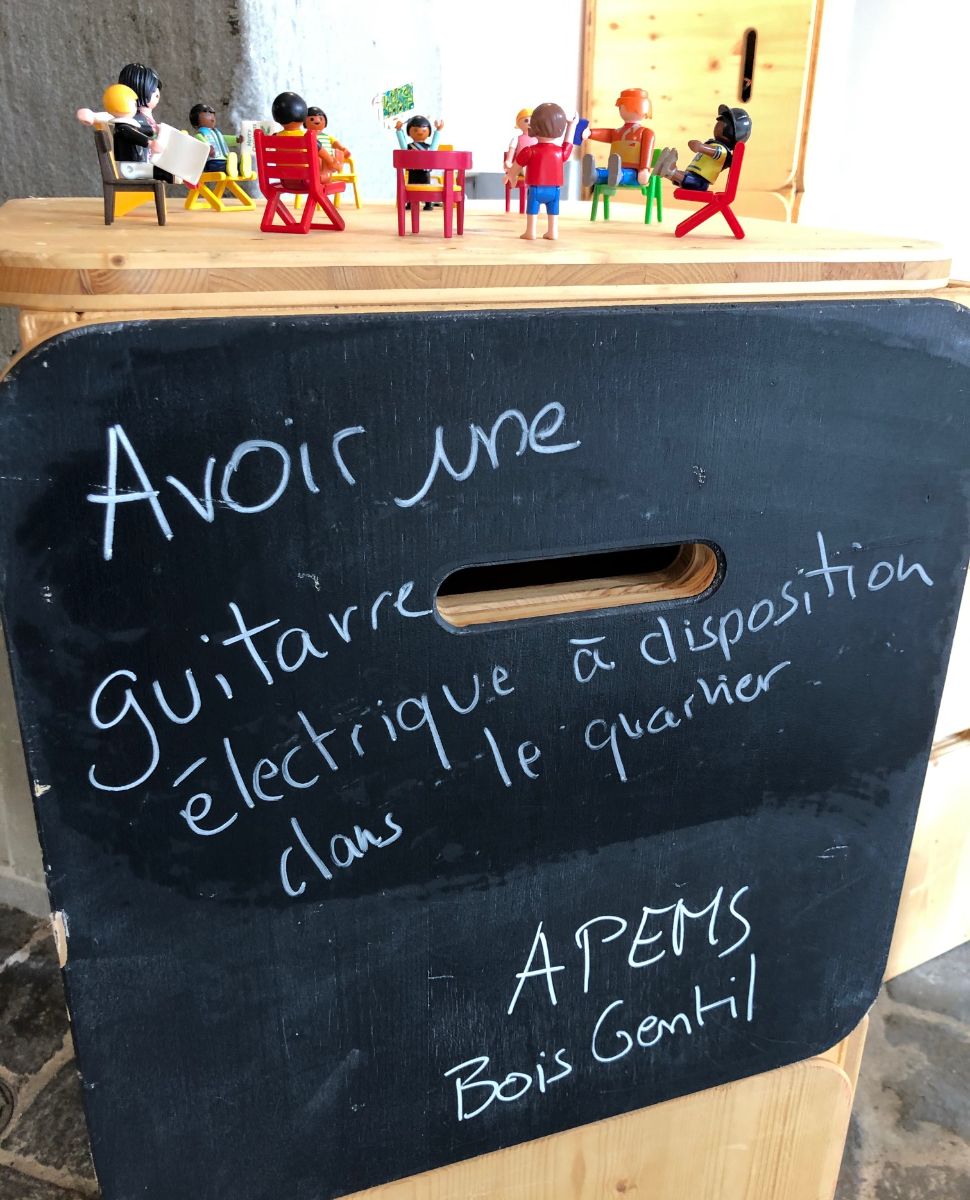 Avoir une
guitarre
électrique à disposition
dans le quartier
APEMS
Bois Gentil